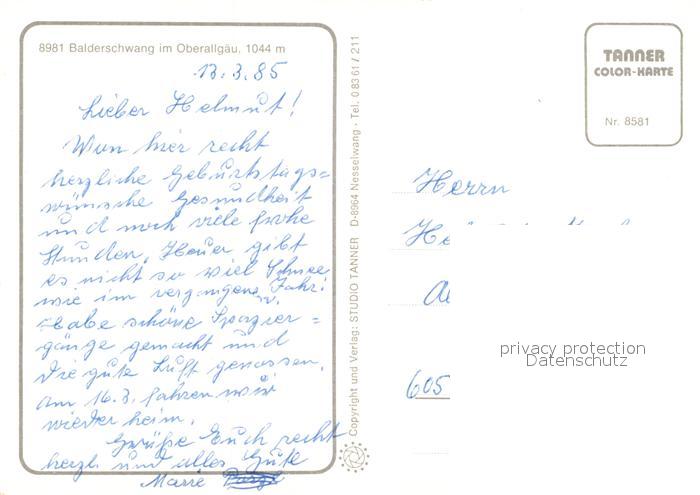 8981 Balderschwang im Oberallgäu, 1044 m
13.3.85
Lieber Helmut!
Wün hier recht
herzliche Geburtstags=
wünsche Gesundheit
und noch viele frohe
Stunden. Heuer gibt
es nicht so viel Schnee
wie im vergangenen Jahr.
Habe schöne Spazier=
gänge gemacht und
die gute Luft genossen.
Am 16.3. fahren wir
wieder heim.
Grüße Euch recht
herzl. und alles Gute
Marie
Copyright und Verlag: STUDIO TANNER D-8964 Nesselwang · Tel. 08361/211
TANNER
COLOR-KARTE
Nr. 8581
Herrn
He
605
privacy protection
Datenschutz